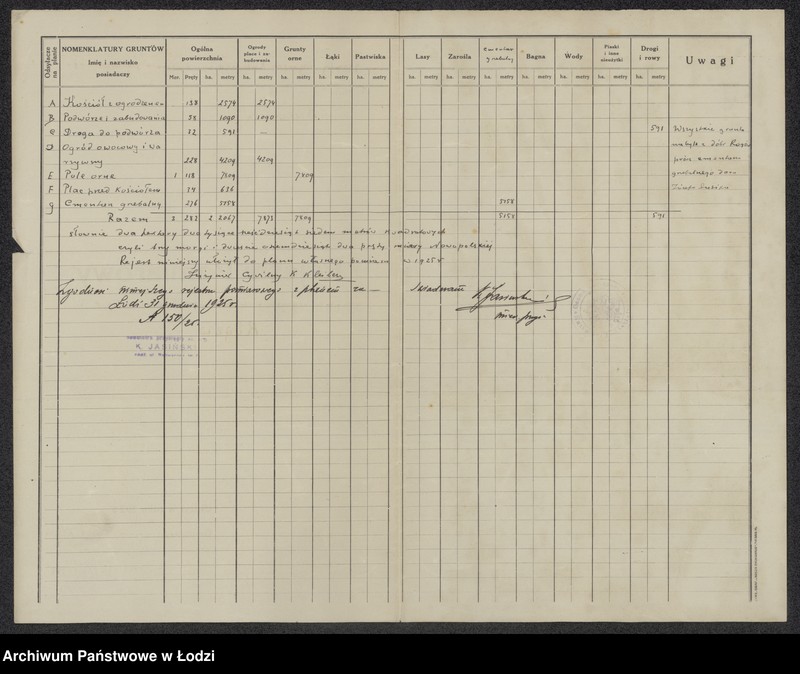 Odsyłacze na planie
NOMENKLATURY GRUNTÓW
Imię i nazwisko
posiadaczy
Ogólna
powierzchnia
Ogrody
place i za-
budowania
Grunty
orne
Łąki
Pastwiska
Lasy
Zarośla
Cmentarz
grzebalny
Bagna
Wody
Piaski
i inne
nieużytki
Drogi
i rowy
Uwagi
Mor. Pręty ha. metry ha. metry ha. metry ha. metry ha. metry ha. metry ha. metry ha. metry ha. metry ha. metry ha. metry ha. metry
A Kościół z ogrodzeniem 138 2574 2574
B Podwórze i zabudowania 1090 1090
C Droga do podwórza 32 591 591
D Ogród owocowy i wa
rzywny 228 4209 4209
E Pole orne 1 118 7809 7809
F Plac przed kościołem 34 636
G Cmentarz grzebalny 276 5158 5158
Razem 3 283 2 2067 7873 7809 5158 591
Wszystkie grunta
nabyte z dóbr
prócz cmentarza
grzebalnego
słownie dwa hektary dwa tysiące sześćdziesiąt siedem metrów kwadratowych
czyli trzy morgi i dwieście osiemdziesiąt dwa pręty miary Nowopolskiej
Rejestr niniejszy ułożył do planu własnego pomiaru w 1925 r
Inżynier Cywilny K
Zgodność niniejszego rejestru pomiarowego z planem za — świadczam
Łódź 31 grudnia 1925 r.
N 150/25.
K. JASIŃSKI
mier. przys.
Archiwum Państwowe w Łodzi